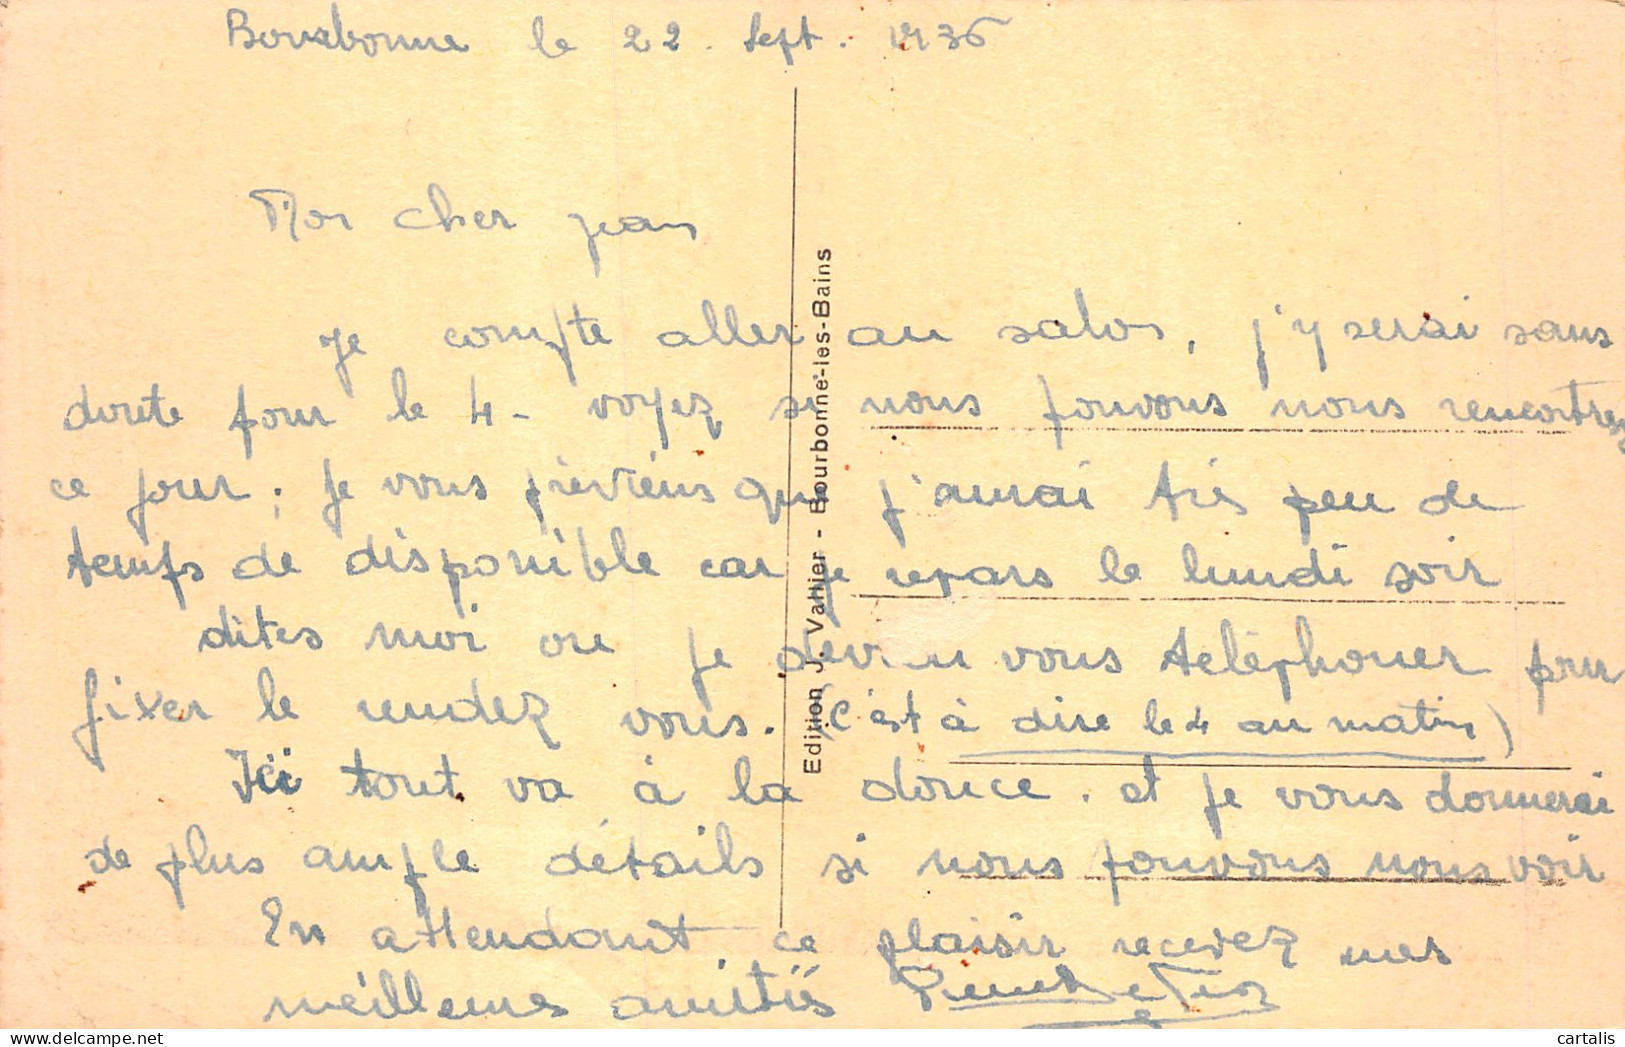 Bourbonne le 22. Sept. 1936
Mon cher Jean
Je compte aller au salon, j'y serai sans
doute pour le 4 - voyez si nous pouvons nous rencontrer
ce jour. Je vous préviens que j'aurai très peu de
temps de disponible car je repars le lundi soir
dites moi où je devrai vous téléphoner pour
fixer le rendez vous. (c'est à dire le 4 au matin)
Ici tout va à la douce. et je vous donnerai
de plus ample détails si nous pouvons nous voir
En attendant ce plaisir recevez mes
meilleures amitiés
Edition J. Vallier - Bourbonne-les-Bains
cartalis